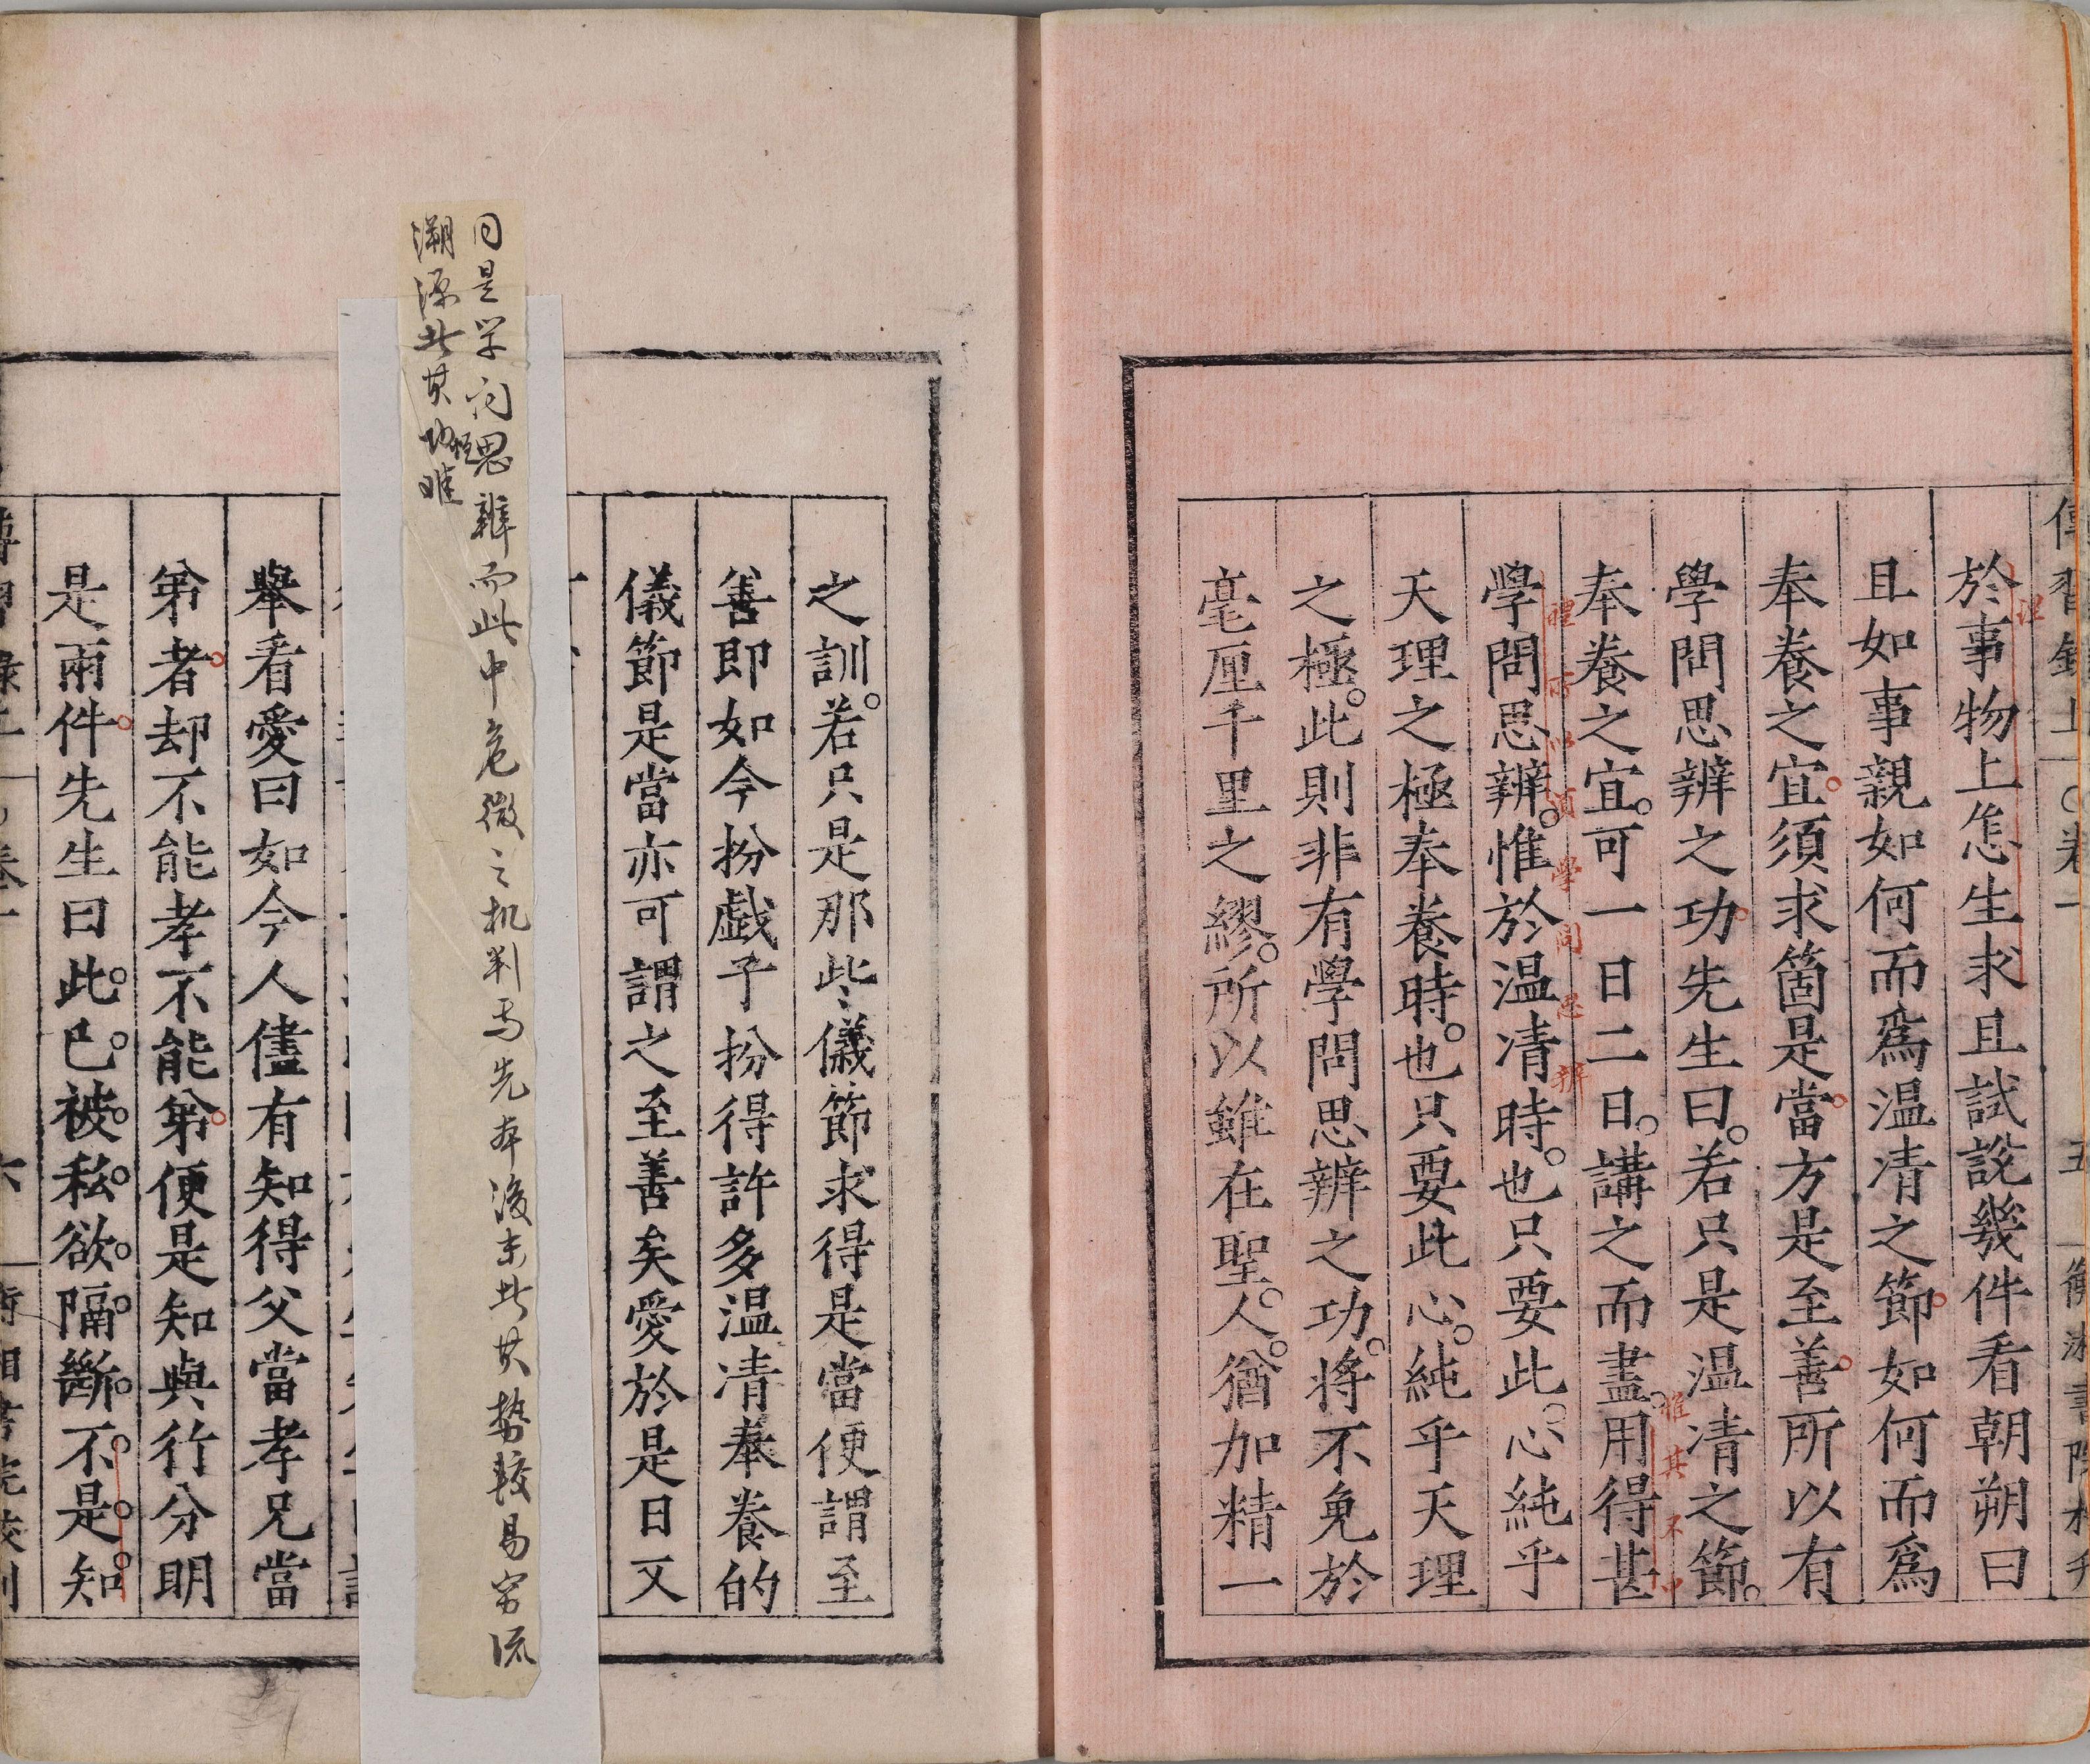 傳習錄上 〇卷一 五 衡湘書院
於事物上怎生求且試說幾件看朝朔曰
且如事親如何而爲温凊之節如何而爲
奉養之宜須求箇是當方是至善所以有
學問思辨之功先生曰若只是温凊之節
奉養之宜可一日二日講之而盡用得甚
學問思辨惟於温凊時也只要此心純乎
天理之極奉養時也只要此心純乎天理
之極此則非有學問思辨之功將不免於
毫厘千里之繆所以雖在聖人猶加精一
理
惟其不中
學問思辨
之訓若只是那些儀節求得是當便謂至
善即如今扮戲子扮得許多温凊奉養的
儀節是當亦可謂之至善矣愛於是日又
同是学问思辨而此中危微之机判焉先本後末此其勢較易穷流
溯源此其功惟
舉看愛曰如今人儘有知得父當孝兄當
弟者却不能孝不能弟便是知與行分明
是兩件先生曰此已被私欲隔斷不是知